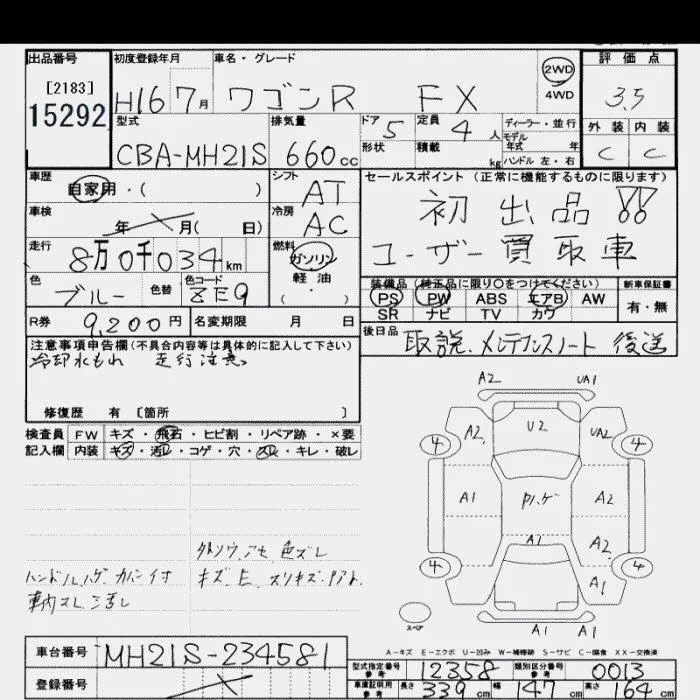 出品番号
[2183]
15292
初度登録年月
H16 7月
車名・グレード
ワゴンR FX
2WD
4WD
評価点
3.5
外装 内装
C C
型式
CBA-MH21S
排気量
660cc
ドア 5
形状
定員 4人
積載 kg
ディーラー・並行
モデル年式 年
ハンドル 左・右
車歴
自家用・( )
車検
年 月( 日)
走行
8万0千034km
色
ブルー
色替
色コード
ZE9
シフト
AT
冷房
AC
燃料
ガソリン
軽油
( ・ )
セールスポイント(正常に機能するものに限ります)
初出品!!
ユーザー買取車
装備品(純正品に限り○をつけてください)
PS PW ABS エアB AW
SR ナビ TV カワ
新車保証書
有・無
R券 9,200円
名変期限 月 日
後日品 取説、メンテナンスノート 後送
注意事項申告欄(不具合内容等は具体的に記入して下さい)
冷却水もれ 走行注意
修復歴 有 〔箇所 〕
検査員記入欄
FW キズ・飛石・ヒビ割・リペア跡・×要
内装 キズ・汚レ・コゲ・穴・スレ・キレ・破レ
色ズレ
ハンドルハゲ
キズ、E、スリキズ
A2 UA1
A2 U2 UA2
4 4
A1 A2
A2
A2
4 4
A1
スペア
A1 A1
A-キズ E-エクボ U-凹み W-補修跡 S-サビ C-腐食 XX-交換済
車台番号 MH21S-234581
登録番号
型式指定番号 参考 12358
類別区分番号 参考 0013
車庫証明用 参考 長さ 339cm 幅 147cm 高さ 164cm